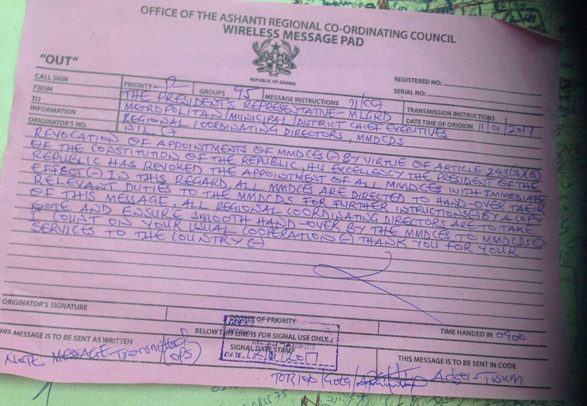 OFFICE OF THE ASHANTI REGIONAL CO-ORDINATING COUNCIL
WIRELESS MESSAGE PAD
REPUBLIC OF GHANA
"OUT"
REGISTERED NO:
SERIAL NO.
CALL SIGN PRIORITY GROUPS 95 MESSAGE INSTRUCTIONS TRANSMISSION INSTRUCTIONS
FROM THE PRESIDENT'S REPRESENTATIVE - MLGRD DATE TIME OF ORIGION 11/01/2017
TO METROPOLITAN/MUNICIPAL/DISTRICT CHIEF EXECUTIVES
INFORMATION REGIONAL COORDINATING DIRECTORS, MMDCDS
ORIGINATOR'S NO. NIL
REVOCATION OF APPOINTMENTS OF MMDCES (-) BY VIRTUE OF ARTICLE 243(3)(B)
OF THE CONSTITUTION OF THE REPUBLIC, HIS EXCELLENCY THE PRESIDENT OF THE
REPUBLIC HAS REVOKED THE APPOINTMENT OF ALL MMDCES WITH IMMEDIATE
EFFECT (-) IN THIS REGARD, ALL MMDCES ARE DIRECTED TO HAND-OVER THEIR
RELEVANT DUTIES TO THE MMDCDS FOR FURTHER INSTRUCTIONS (-) BY A COPY
OF THIS MESSAGE, ALL REGIONAL COORDINATING DIRECTOR ARE TO TAKE
NOTE AND ENSURE SMOOTH HAND-OVER BY THE MMDCES TO MMDCDS (-)
I COUNT ON YOUR USUAL COOPERATION (-) THANK YOU FOR YOUR
SERVICES TO THE COUNTRY (-)
ORIGINATOR'S SIGNATURE DEGREE OF PRIORITY TIME HANDED IN 0900
BELOW THIS LINE IS FOR SIGNAL USE ONLY
THIS MESSAGE IS TO BE SENT AS WRITTEN SIGNAL DATE STAMP THIS MESSAGE IS TO BE SENT IN CODE
DATE
Note: Message Transmitted